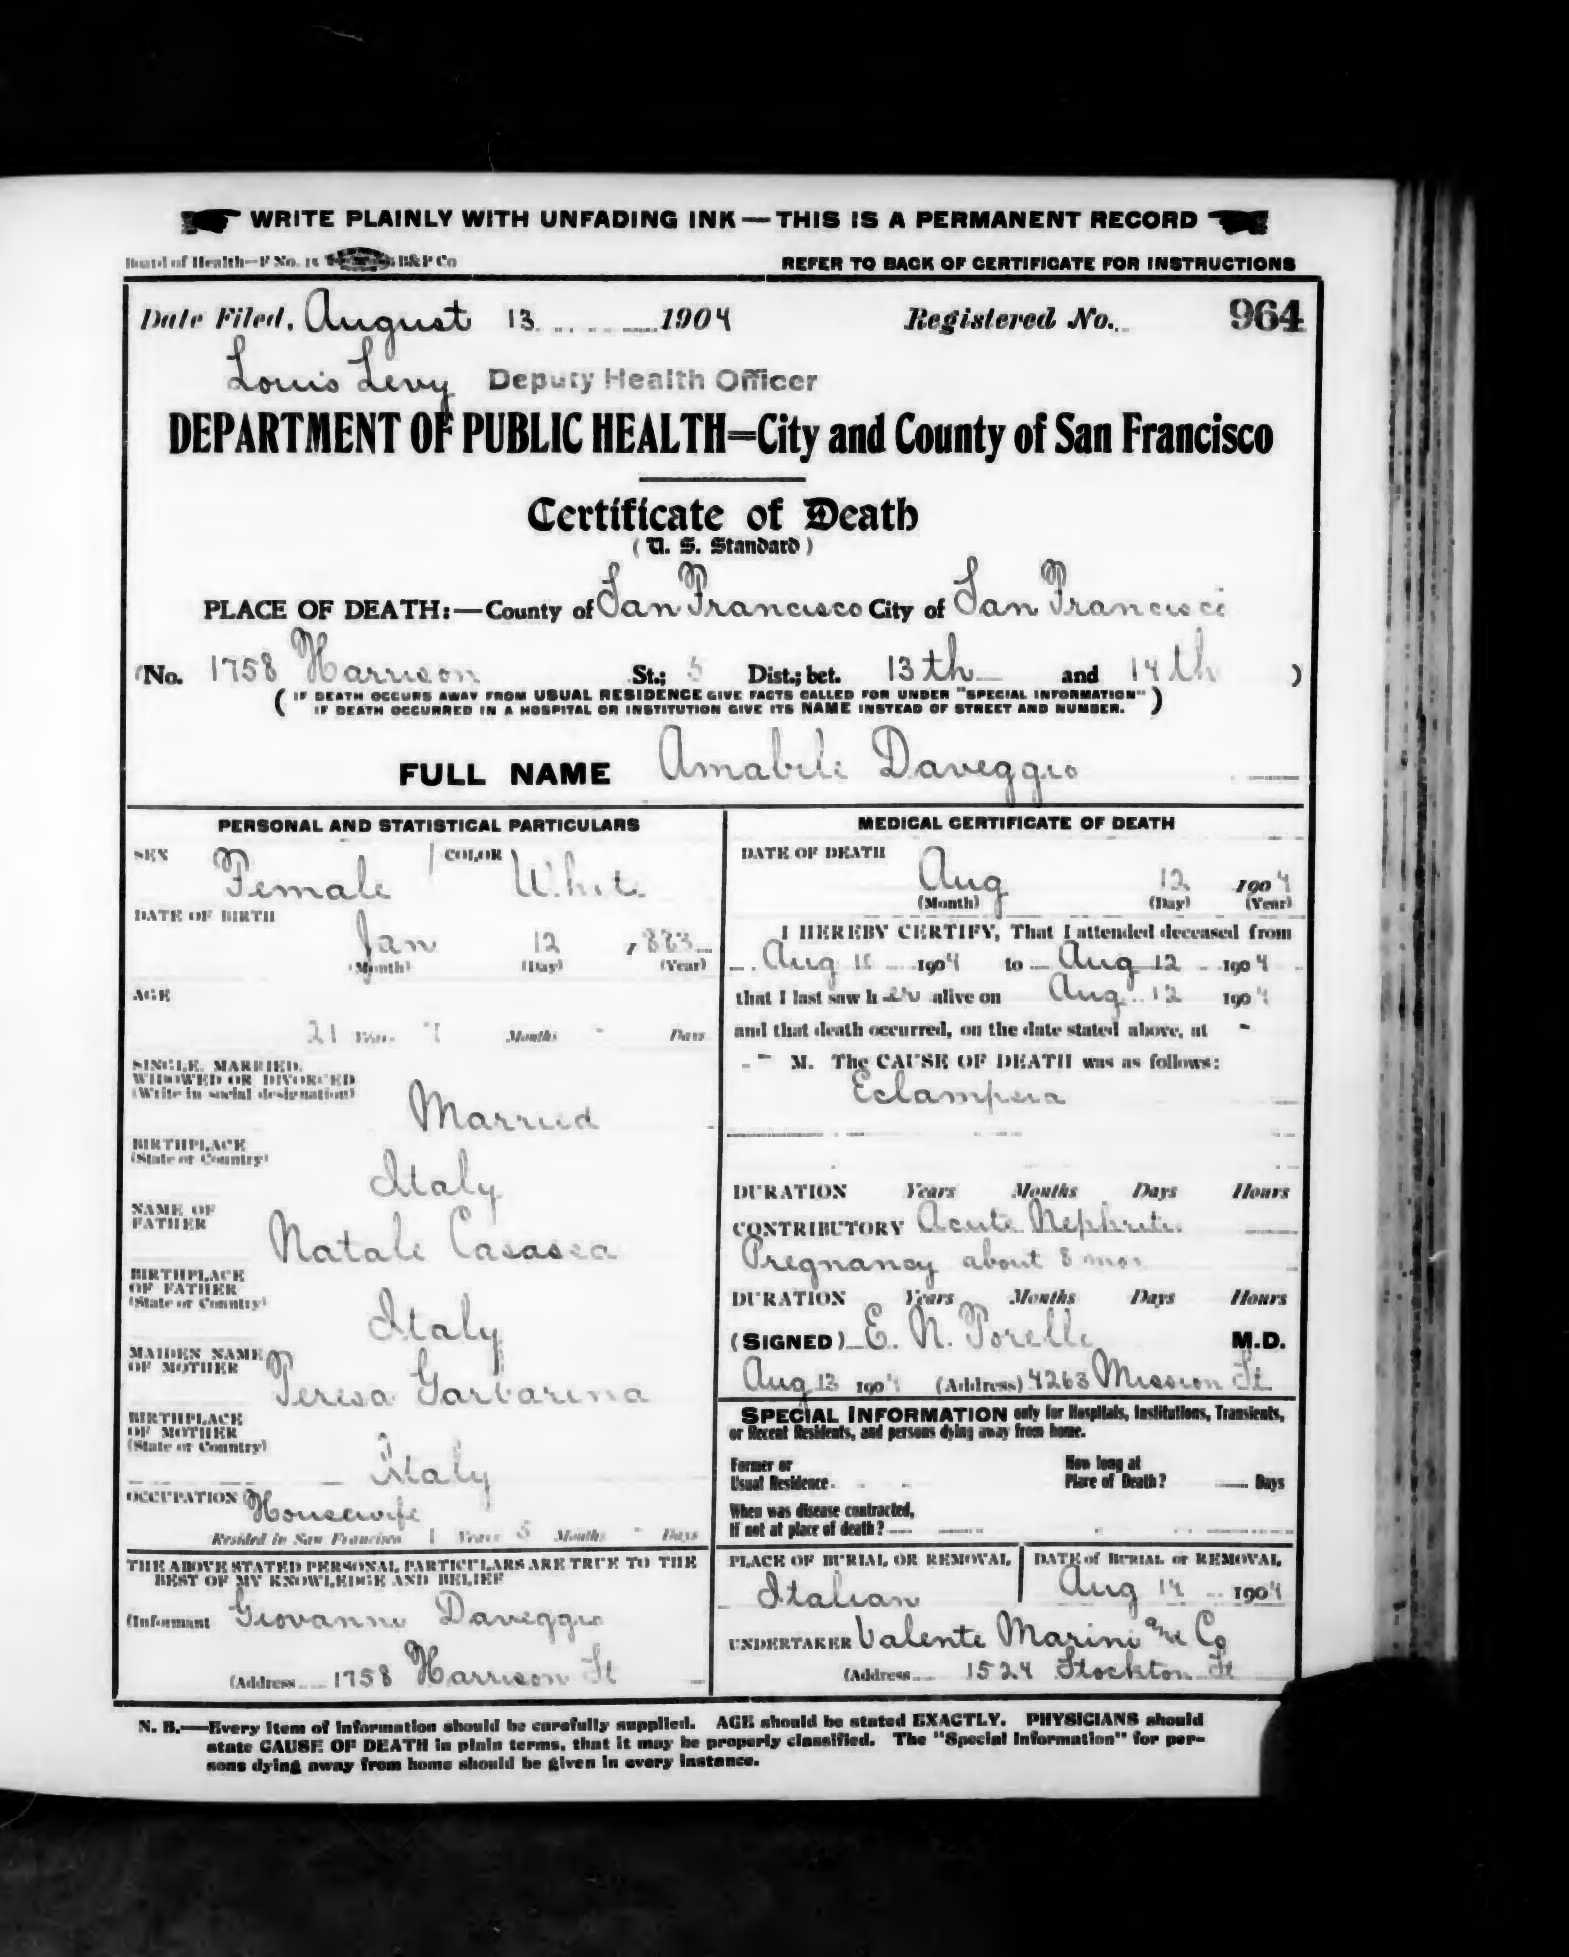 WRITE PLAINLY WITH UNFADING INK — THIS IS A PERMANENT RECORD
Board of Health—F No. 15 B&P Co
REFER TO BACK OF CERTIFICATE FOR INSTRUCTIONS
Date Filed, August 13 1904 Registered No. 964
Louis Levy Deputy Health Officer
DEPARTMENT OF PUBLIC HEALTH=City and County of San Francisco
Certificate of Death
(U. S. Standard)
PLACE OF DEATH:—County of San Francisco City of San Francisco
(No. 1758 Harrison St.; 5 Dist.; bet. 13th and 14th )
( IF DEATH OCCURS AWAY FROM USUAL RESIDENCE GIVE FACTS CALLED FOR UNDER "SPECIAL INFORMATION" )
IF DEATH OCCURRED IN A HOSPITAL OR INSTITUTION GIVE ITS NAME INSTEAD OF STREET AND NUMBER.
FULL NAME Amabile Daveggio
PERSONAL AND STATISTICAL PARTICULARS
SEX Female COLOR White
DATE OF BIRTH
Jan 12 , 883
(Month) (Day) (Year)
AGE
21 Years 7 Months - Days
SINGLE, MARRIED,
WIDOWED OR DIVORCED
(Write in social designation)
Married
BIRTHPLACE
(State or Country)
Italy
NAME OF
FATHER
Natale Casassa
BIRTHPLACE
OF FATHER
(State or Country)
Italy
MAIDEN NAME
OF MOTHER
Teresa Garbarina
BIRTHPLACE
OF MOTHER
(State or Country)
Italy
OCCUPATION Housewife
Resided in San Francisco 1 Years 5 Months - Days
THE ABOVE STATED PERSONAL PARTICULARS ARE TRUE TO THE
BEST OF MY KNOWLEDGE AND BELIEF
(Informant Giovanni Daveggio
(Address 1758 Harrison St
MEDICAL CERTIFICATE OF DEATH
DATE OF DEATH
Aug 12 1904
(Month) (Day) (Year)
I HEREBY CERTIFY, That I attended deceased from
Aug 1904 to Aug 12 1904
that I last saw her alive on Aug 12 1904
and that death occurred, on the date stated above, at -
- M. The CAUSE OF DEATH was as follows:
Eclampsia
DURATION Years Months Days Hours
CONTRIBUTORY Acute Nephritis
Pregnancy about 8 mos
DURATION Years Months Days Hours
(SIGNED) E. N. Torello M.D.
Aug 13 1904 (Address) 4263 Mission St
SPECIAL INFORMATION only for Hospitals, Institutions, Transients,
or Recent Residents, and persons dying away from home.
Former or
Usual Residence
How long at
Place of Death? Days
When was disease contracted,
If not at place of death?
PLACE OF BURIAL OR REMOVAL
Italian
DATE of BURIAL or REMOVAL
Aug 14 1904
UNDERTAKER Valente Marini and Co
(Address 1524 Stockton St
N. B.—Every item of information should be carefully supplied. AGE should be stated EXACTLY. PHYSICIANS should
state CAUSE OF DEATH in plain terms, that it may be properly classified. The "Special Information" for per-
sons dying away from home should be given in every instance.